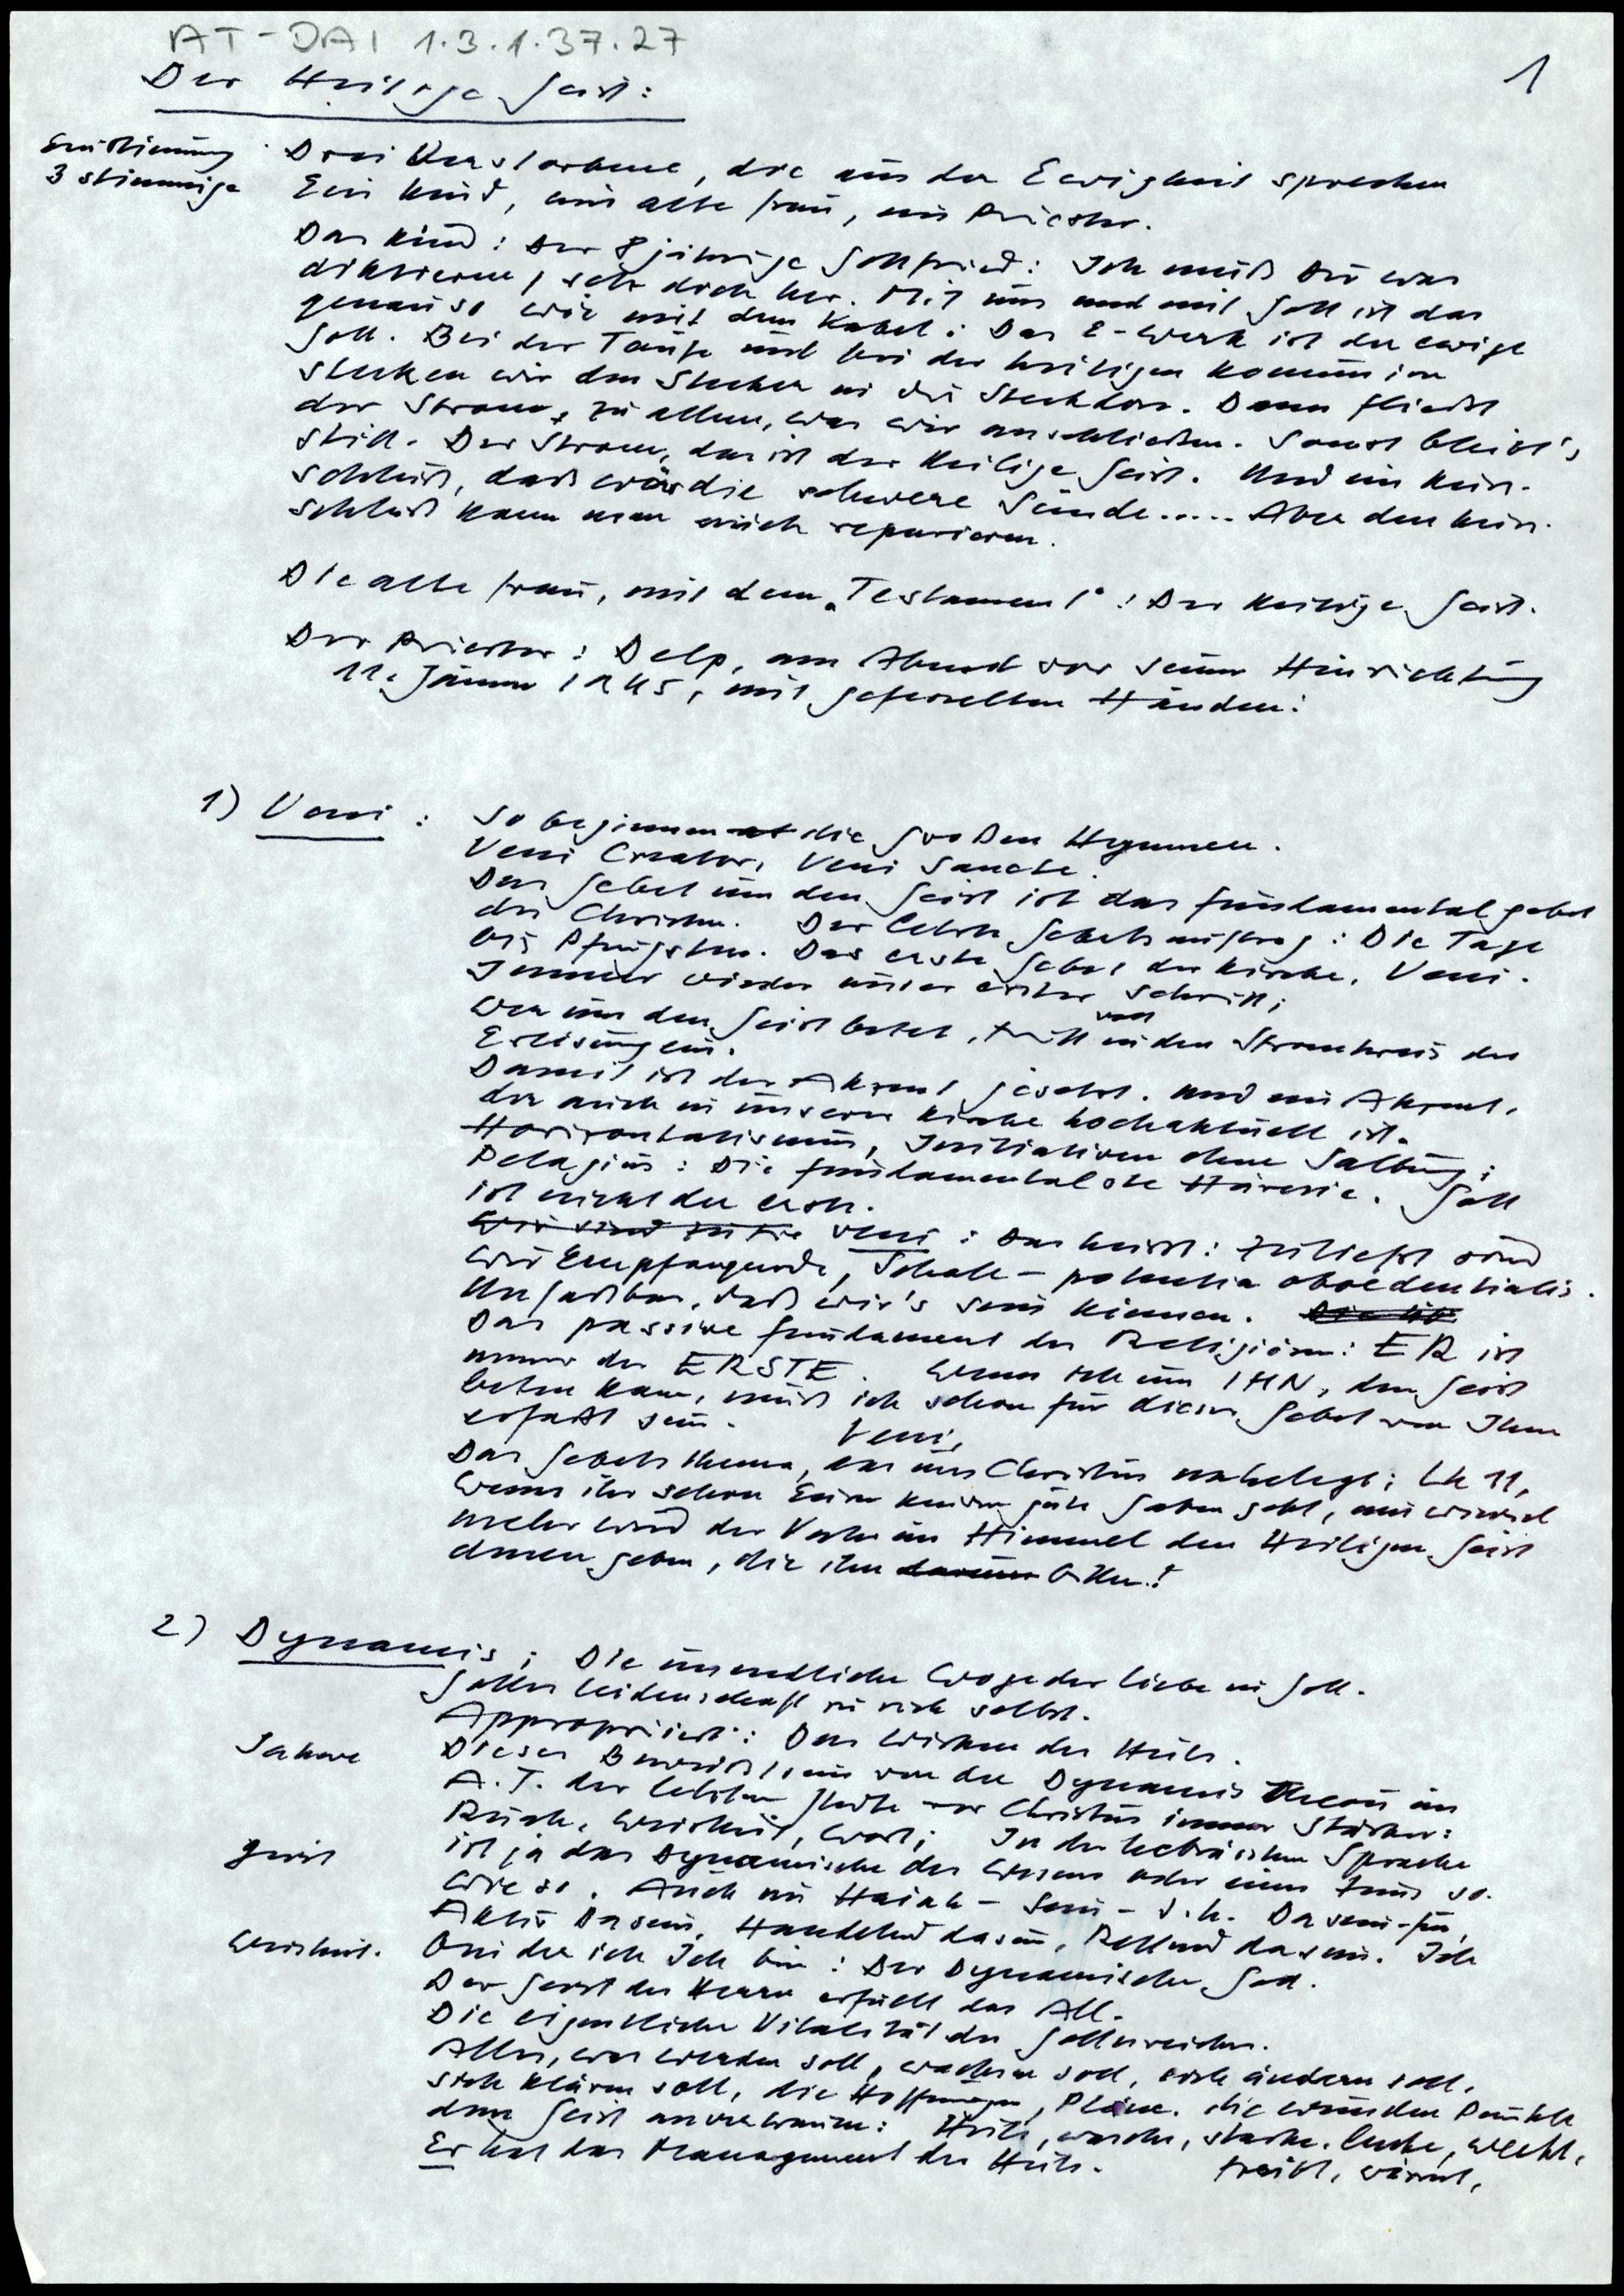 AT-DAI 1.3.1.37.27
1
Der Heilige Geist:
Einstimmung
3 stimmige
Drei Verstorbene, die aus der Ewigkeit sprechen
Ein Kind, eine alte Frau, ein Priester.
Das Kind: Der 8 jährige Gottfried: Ich muß Dir was
diktieren, setz dich her. Mit uns und mit Gott ist das
genauso wie mit dem Kabel: Das E-Werk ist der ewige
Gott. Bei der Taufe und bei der heiligen Kommunion
stecken wir den Stecker in die Steckdose. Dann fließt
der Strom, zu allem, was wir anschließen. Sonst bleibt's
still. Der Strom, das ist der Heilige Geist. Und ein Kurz-
schluß, das wär die schwere Sünde..... Aber den Kurz-
schluß kann man auch reparieren.
Die alte Frau, mit dem „Testament": Der Heilige Geist.
Der Priester: Delp, am Abend vor seiner Hinrichtung
11. Jänner 1945, mit gefesselten Händen:
1) Veni: So beginnen die großen Hymnen.
Veni Creator, Veni Sancte.
Das Gebet um den Geist ist das Fundamentalgebet
des Christen. Der letzte Gebetsauftrag: Die Tage
bis Pfingsten. Das erste Gebet der Kirche, Veni.
Immer wieder unser erster Schritt;
Wer um den Geist betet, tritt in den Stromkreis der
Erlösung ein.
Damit ist der Akzent gesetzt. Und ein Akzent,
der auch in unserer Kirche hochaktuell ist.
Horizontalismus, Initiativen ohne Salbung;
Pelagius: Die fundamentalste Häresie. Gott
ist nicht der erste.
Veni: Das heisst: Zutiefst sind
wir Empfangende, Schale - potentia oboedentialis.
Unfaßbar, daß wir's sein können.
Das passive Fundament des Religiösen: ER ist
immer der ERSTE. Wenn ich um IHN, den Geist
beten kann, muß ich schon für dieses Gebet von Ihm
erfaßt sein. Veni,
Das Gebetsthema, das uns Christus nahelegt: Lk 11,
Wenn ihr schon Euren Kindern gute Gaben gebt, um wieviel
mehr wird der Vater im Himmel den Heiligen Geist
denen geben, die ihn bitten!
2) Dynamis: Die unendliche Woge der Liebe in Gott.
Gottes Leidenschaft zu sich selbst.
Appropriiert: Das Wirken des Heils.
Jahwe
Dieses Bewußtsein von der Dynamis Theou im
A.T. der letzten Jhdte vor Christus immer stärker:
Ruach, Weisheit, Wort; In der hebräischen Sprache
Geist
ist ja das Dynamische des Wesens oder eines Tuns so-
wieso. Auch im Hajah - Sein - d.h. Dasein-für,
Aktiv Dasein, Handelnd dasein, Rettend dasein. Ich
Weisheit.
bin der ich Ich bin: Der Dynamische Gott.
Der Geist des Herrn erfüllt das All.
Die eigentliche Vitalität des Gottesreiches.
Alles, was werden soll, wachsen soll, sich ändern soll,
sich klären soll, die Hoffnungen, Pläne, die wunden Punkte
dem Geist anvertrauen: Heile, wasche, stärke, lenke, weckt,
treibt, wärmt,
Er hat das Management des Heils.